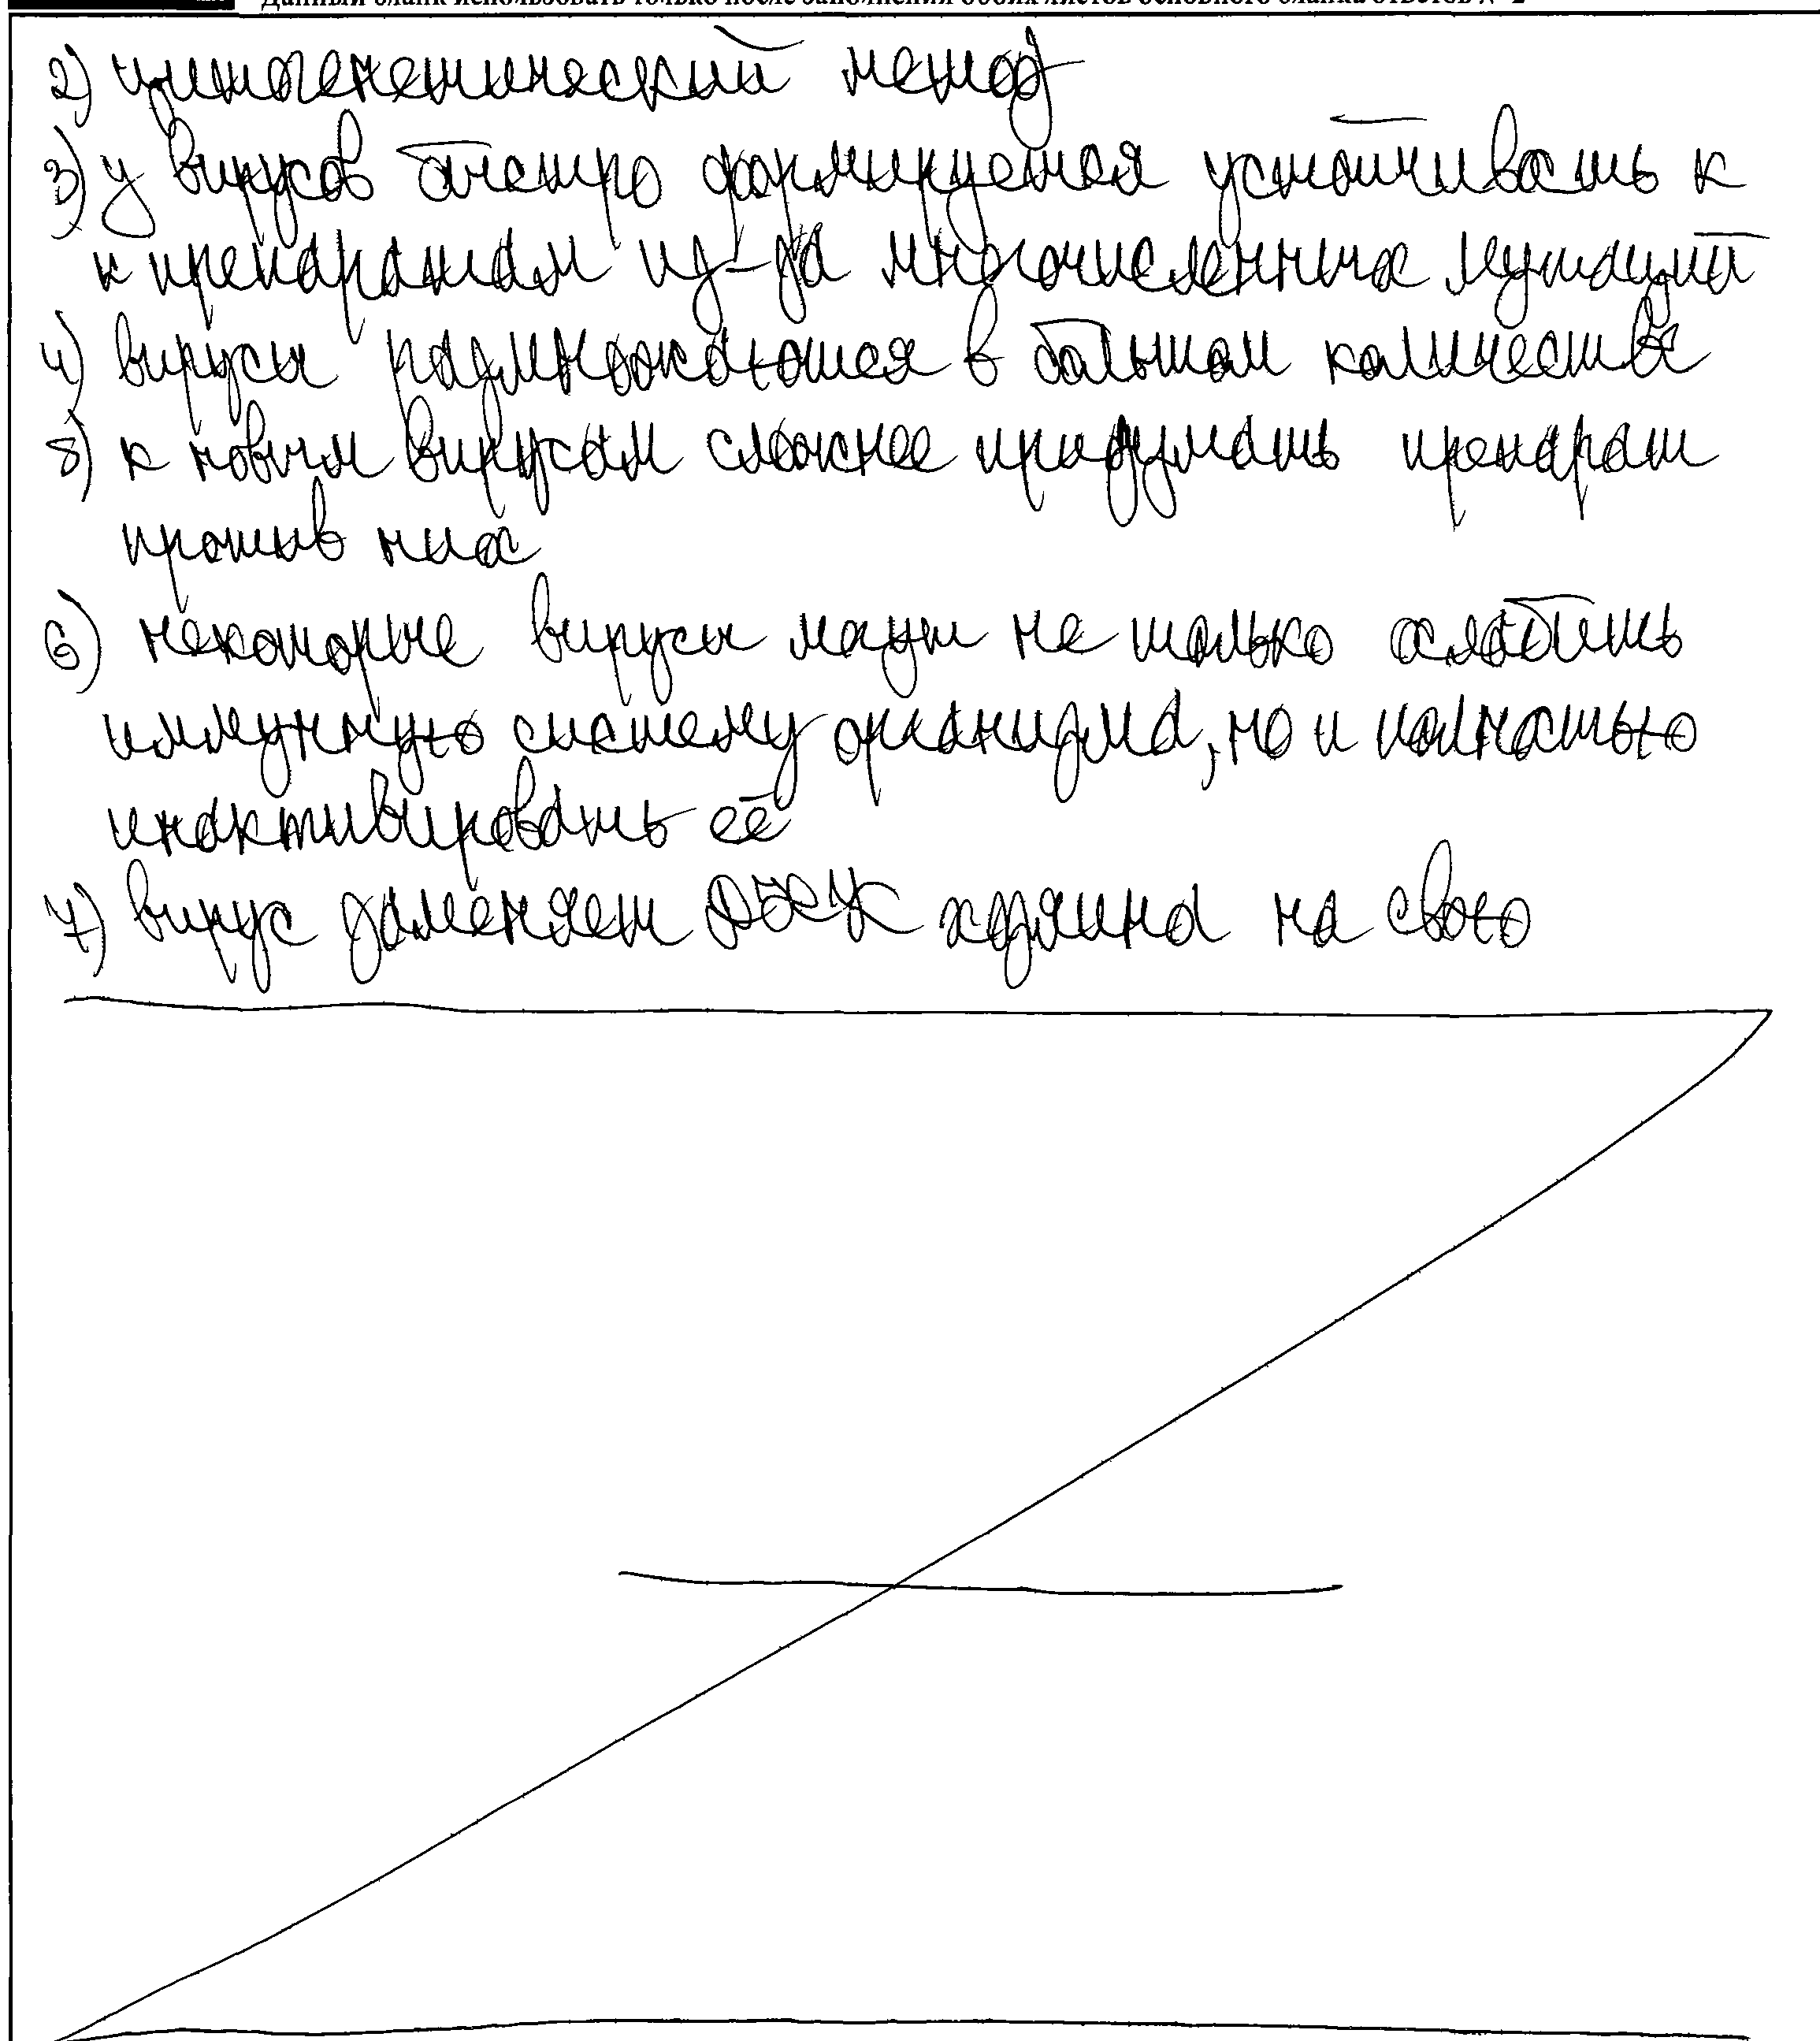 Данный бланк использовать только после заполнения обоих листов основного бланка ответов № 2
2) цитогенетический метод
3) у вирусов быстро формируется устойчивость к
к препаратам из-за многочисленных мутаций
4) вирусы размножаются в большом количестве
5) к новым вирусам сложнее придумать препарат
против них
6) некоторые вирусы могут не только ослабить
иммунную систему организма, но и полностью
инактивировать её
7) вирус заменяет ДНК хозяина на свою